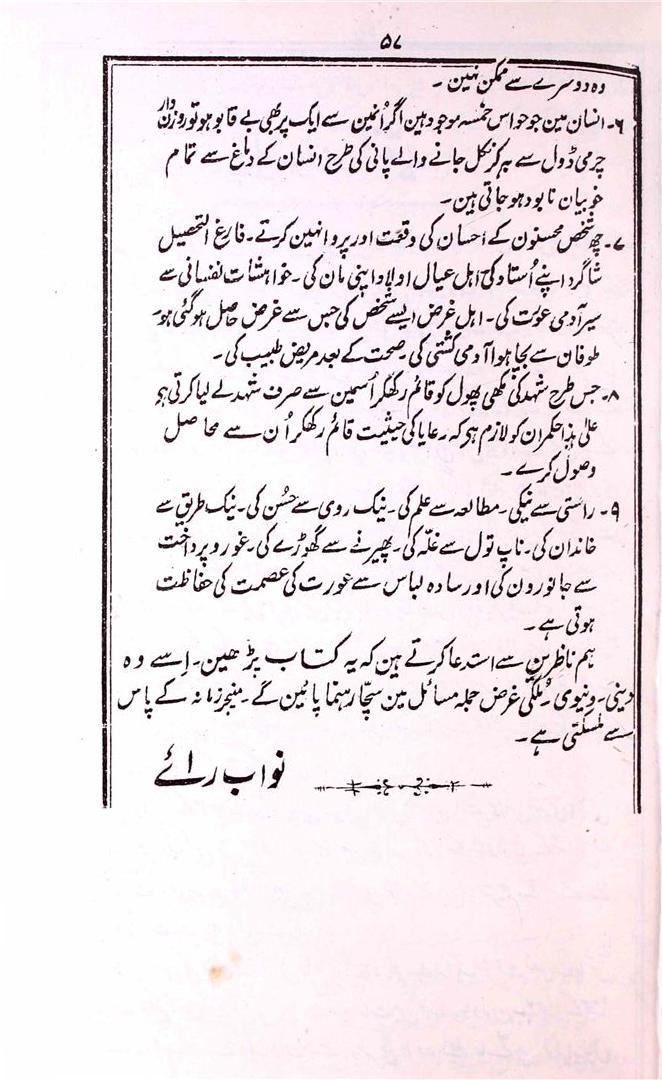 ۵۷
وہ دوسرے سے ممکن نہین۔
۶۔ انسان مین جو حواس خمسہ موجود ہین اگر اُنمین سے ایک پر بھی بے قابو ہو تو روزن دار
چرمی ڈول سے بہ کر نکل جانے والے پانی کی طرح انسان کے دماغ سے تمام
خوبیان نابود ہو جاتی ہین۔
۷۔ چھ شخص محسنون کے احسان کی وقعت اور پروا نہین کرتے۔ فارغ التحصیل
شاگرد اپنے اُستاد کی۔ اہل عیال اولاد اپنی مان کی۔ خواہشات نفسانی سے
سیر آدمی عورت کی۔ اہل غرض ایسے شخص کی جس سے غرض حاصل ہو گئی ہو۔
طوفان سے بچا ہوا آدمی کشتی کی۔ صحت کے بعد مریض طبیب کی۔
۸۔ جس طرح شہد کی مکھی پھول کو قائم رکھکر اُسمین سے صرف شہد لے لیا کرتی ہے
علیٰ ہذا حکمران کو لازم ہے کہ رعایا کی حیثیت قائم رکھکر اُن سے محاصل
وصول کرے۔
۹۔ راستی سے نیکی۔ مطالعہ سے علم کی۔ نیک روی سے حُسن کی۔ نیک طریق سے
خاندان کی۔ ناپ تول سے غلّہ کی۔ پھیرنے سے گھوڑے کی۔ غور و پرداخت
سے جانورون کی اور سادہ لباس سے عورت کی عصمت کی حفاظت
ہوتی ہے۔
ہم ناظرین سے استدعا کرتے ہین کہ یہ کتاب پڑھین۔ اِسے وہ
دینی۔ دنیوی۔ مُلکی غرض جملہ مسائل مین سچّا رہنما پائین گے۔ منیجر زمانہ کے پاس
سے ملسکتی ہے۔
نواب رائے